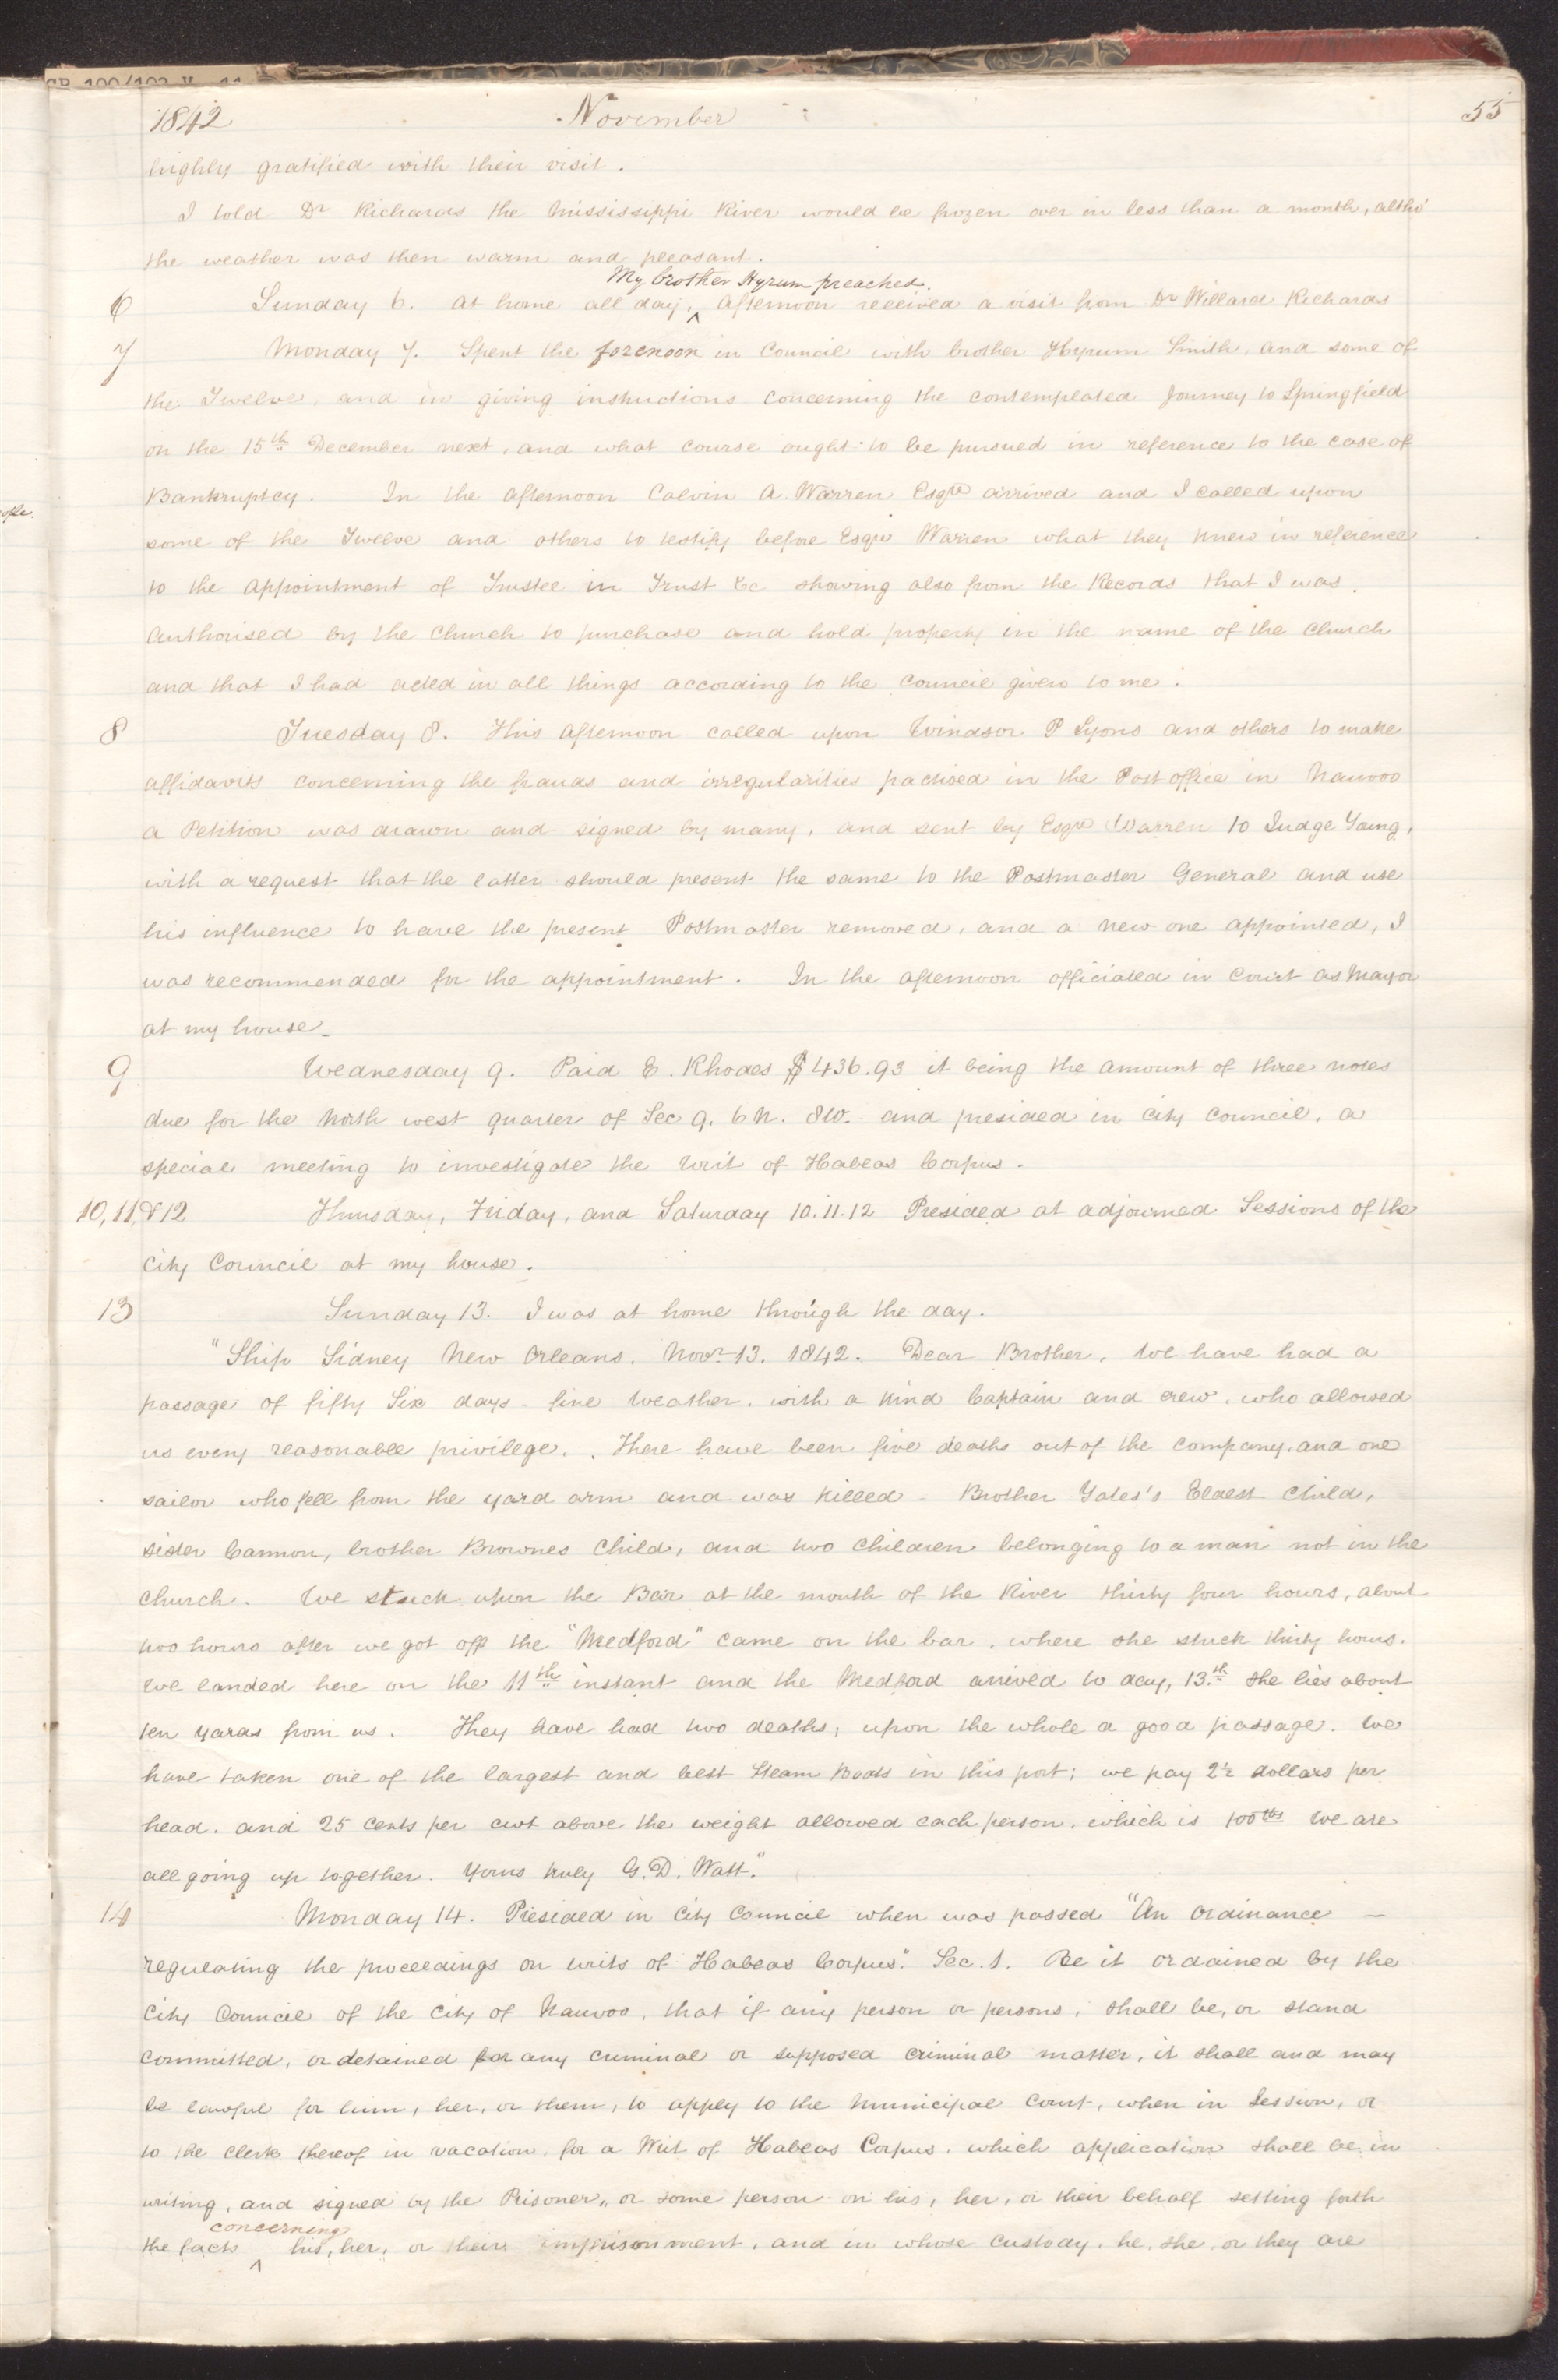 1842 November 55
highly gratified with their visit.
I told Dr Richards the Mississippi River would be frozen over in less than a month, altho'
the weather was then warm and pleasant.
My brother Hyrum preached.
6 Sunday 6. At home all day, ^ Afternoon received a visit from Dr Willard Richards
7 Monday 7. Spent the forenoon in Council with brother Hyrum Smith, and some of
the Twelve, and in giving instructions concerning the contemplated Journey to Springfield
on the 15th December next, and what course ought to be pursued in reference to the case of
Bankruptcy. In the afternoon Calvin A. Warren Esqre arrived and I called upon
some of the Twelve and others to testify before Esqre Warren what they knew in reference
to the appointment of Trustee in Trust &c showing also from the Records that I was
authorised by the Church to purchase and hold property in the name of the Church
and that I had acted in all things according to the Council given to me.
8 Tuesday 8. This Afternoon called upon Windsor P Lyons and others to make
affidavits concerning the frauds and irregularities practised in the Post office in Nauvoo
a Petition was drawn and signed by many, and sent by Esqre Warren to Judge Young,
with a request that the latter should present the same to the Postmaster General and use
his influence to have the present Postmaster removed, and a new one appointed, I
was recommended for the appointment. In the afternoon officiated in Court as Mayor
at my house_
9 Wednesday 9. Paid E. Rhodes $436.93 it being the amount of three notes
due for the North west quarter of Sec 9. 6 N. 8W. and presided in City Council, a
special meeting to investigate the Writ of Habeas Corpus.
10, 11, & 12 Thursday, Friday, and Saturday 10.11.12 Presided at adjourned Sessions of the
City Council at my house.
13 Sunday 13. I was at home through the day.
"Ship Sidney New Orleans. Novr 13. 1842. Dear Brother, We have had a
passage of fifty Six days. fine Weather. with a kind Captain and crew, who allowed
us every reasonable privilege. There have been five deaths out of the company, and one
sailor who fell from the yard arm and was killed - Brother Yates's Eldest Child,
sister Cannon, brother Brownes Child, and two Children belonging to a man not in the
church. We stuck upon the Bar at the mouth of the River thirty four hours, about
two hours after we got off the "Medford" came on the bar, where she stuck thirty hours.
We landed here on the 11th instant and the Medford arrived to day, 13th she lies about
ten yards from us. They have had two deaths, upon the whole a good passage. We
have taken one of the largest and best Steam Boats in this port; we pay 2½ dollars per
head. and 25 cents per cwt above the weight allowed each person, which is 100lbs We are
all going up together. Yours truly G. D. Watt."
14 Monday 14. Presided in City Council when was passed "An Ordinance —
regulating the proceedings on writs of Habeas Corpus." Sec. 1. Be it ordained by the
City Council of the City of Nauvoo, that if any person or persons, shall be, or stand
committed, or detained for any criminal or supposed criminal matter, it shall and may
be lawful for him, her, or them, to apply to the Municipal Court, when in Session, or
to the clerk thereof in vacation, for a Writ of Habeas Corpus, which application shall be in
writing, and signed by the Prisoner, or some person on his, her, or their behalf setting forth
concerning
the facts ^ his, her, or their imprisonment, and in whose custody, he, she, or they are